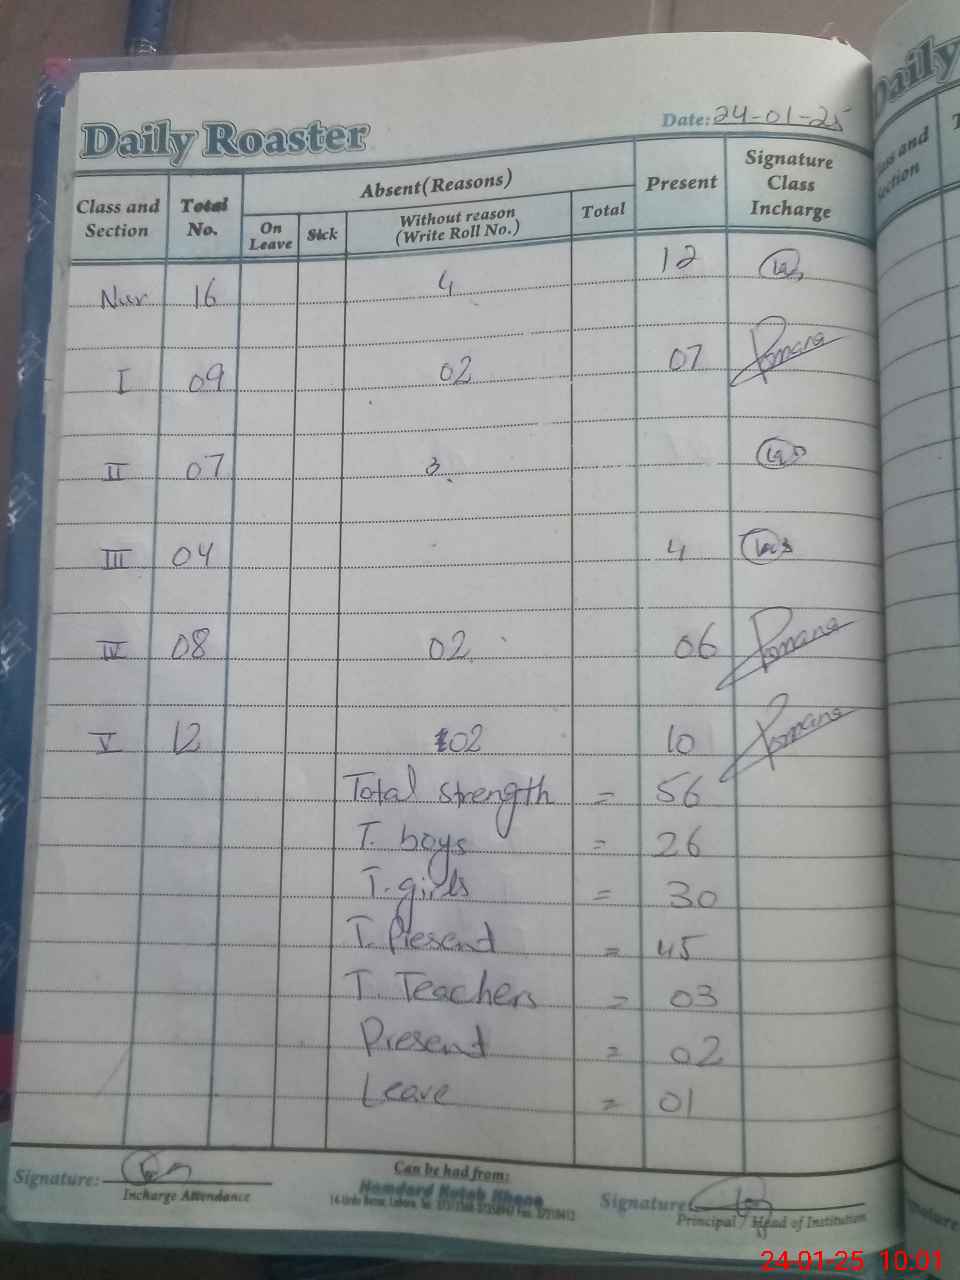 Daily Roaster
Date: 24-01-25
Class and Section Total No. Absent (Reasons) Present Signature Class Incharge
On Leave Sick Without reason (Write Roll No.) Total
Nur 16 4 12
I 09 02 07 Romana
II 07 3
III 04 4
IV 08 02 06 Romana
V 12 02 10 Romana
Total strength = 56
T. boys = 26
T. girls = 30
T. Present = 45
T. Teachers = 03
Present = 02
Leave = 01
Signature: Can be had from: Signature
Incharge Attendance Hamdard Kutab Khana Principal / Head of Institution
24-01-25 10:01
Daily